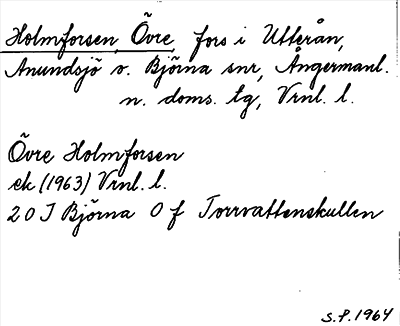 Holmforsen, Övre, fors i Utterån,
Anundsjö o. Björna snr, Ångermanl.
n. doms. tg, Vrnl. l.
Övre Holmforsen
ek (1963) Vrnl. l.
20 J Björna O f Torrvattenskullen
S.P. 1964